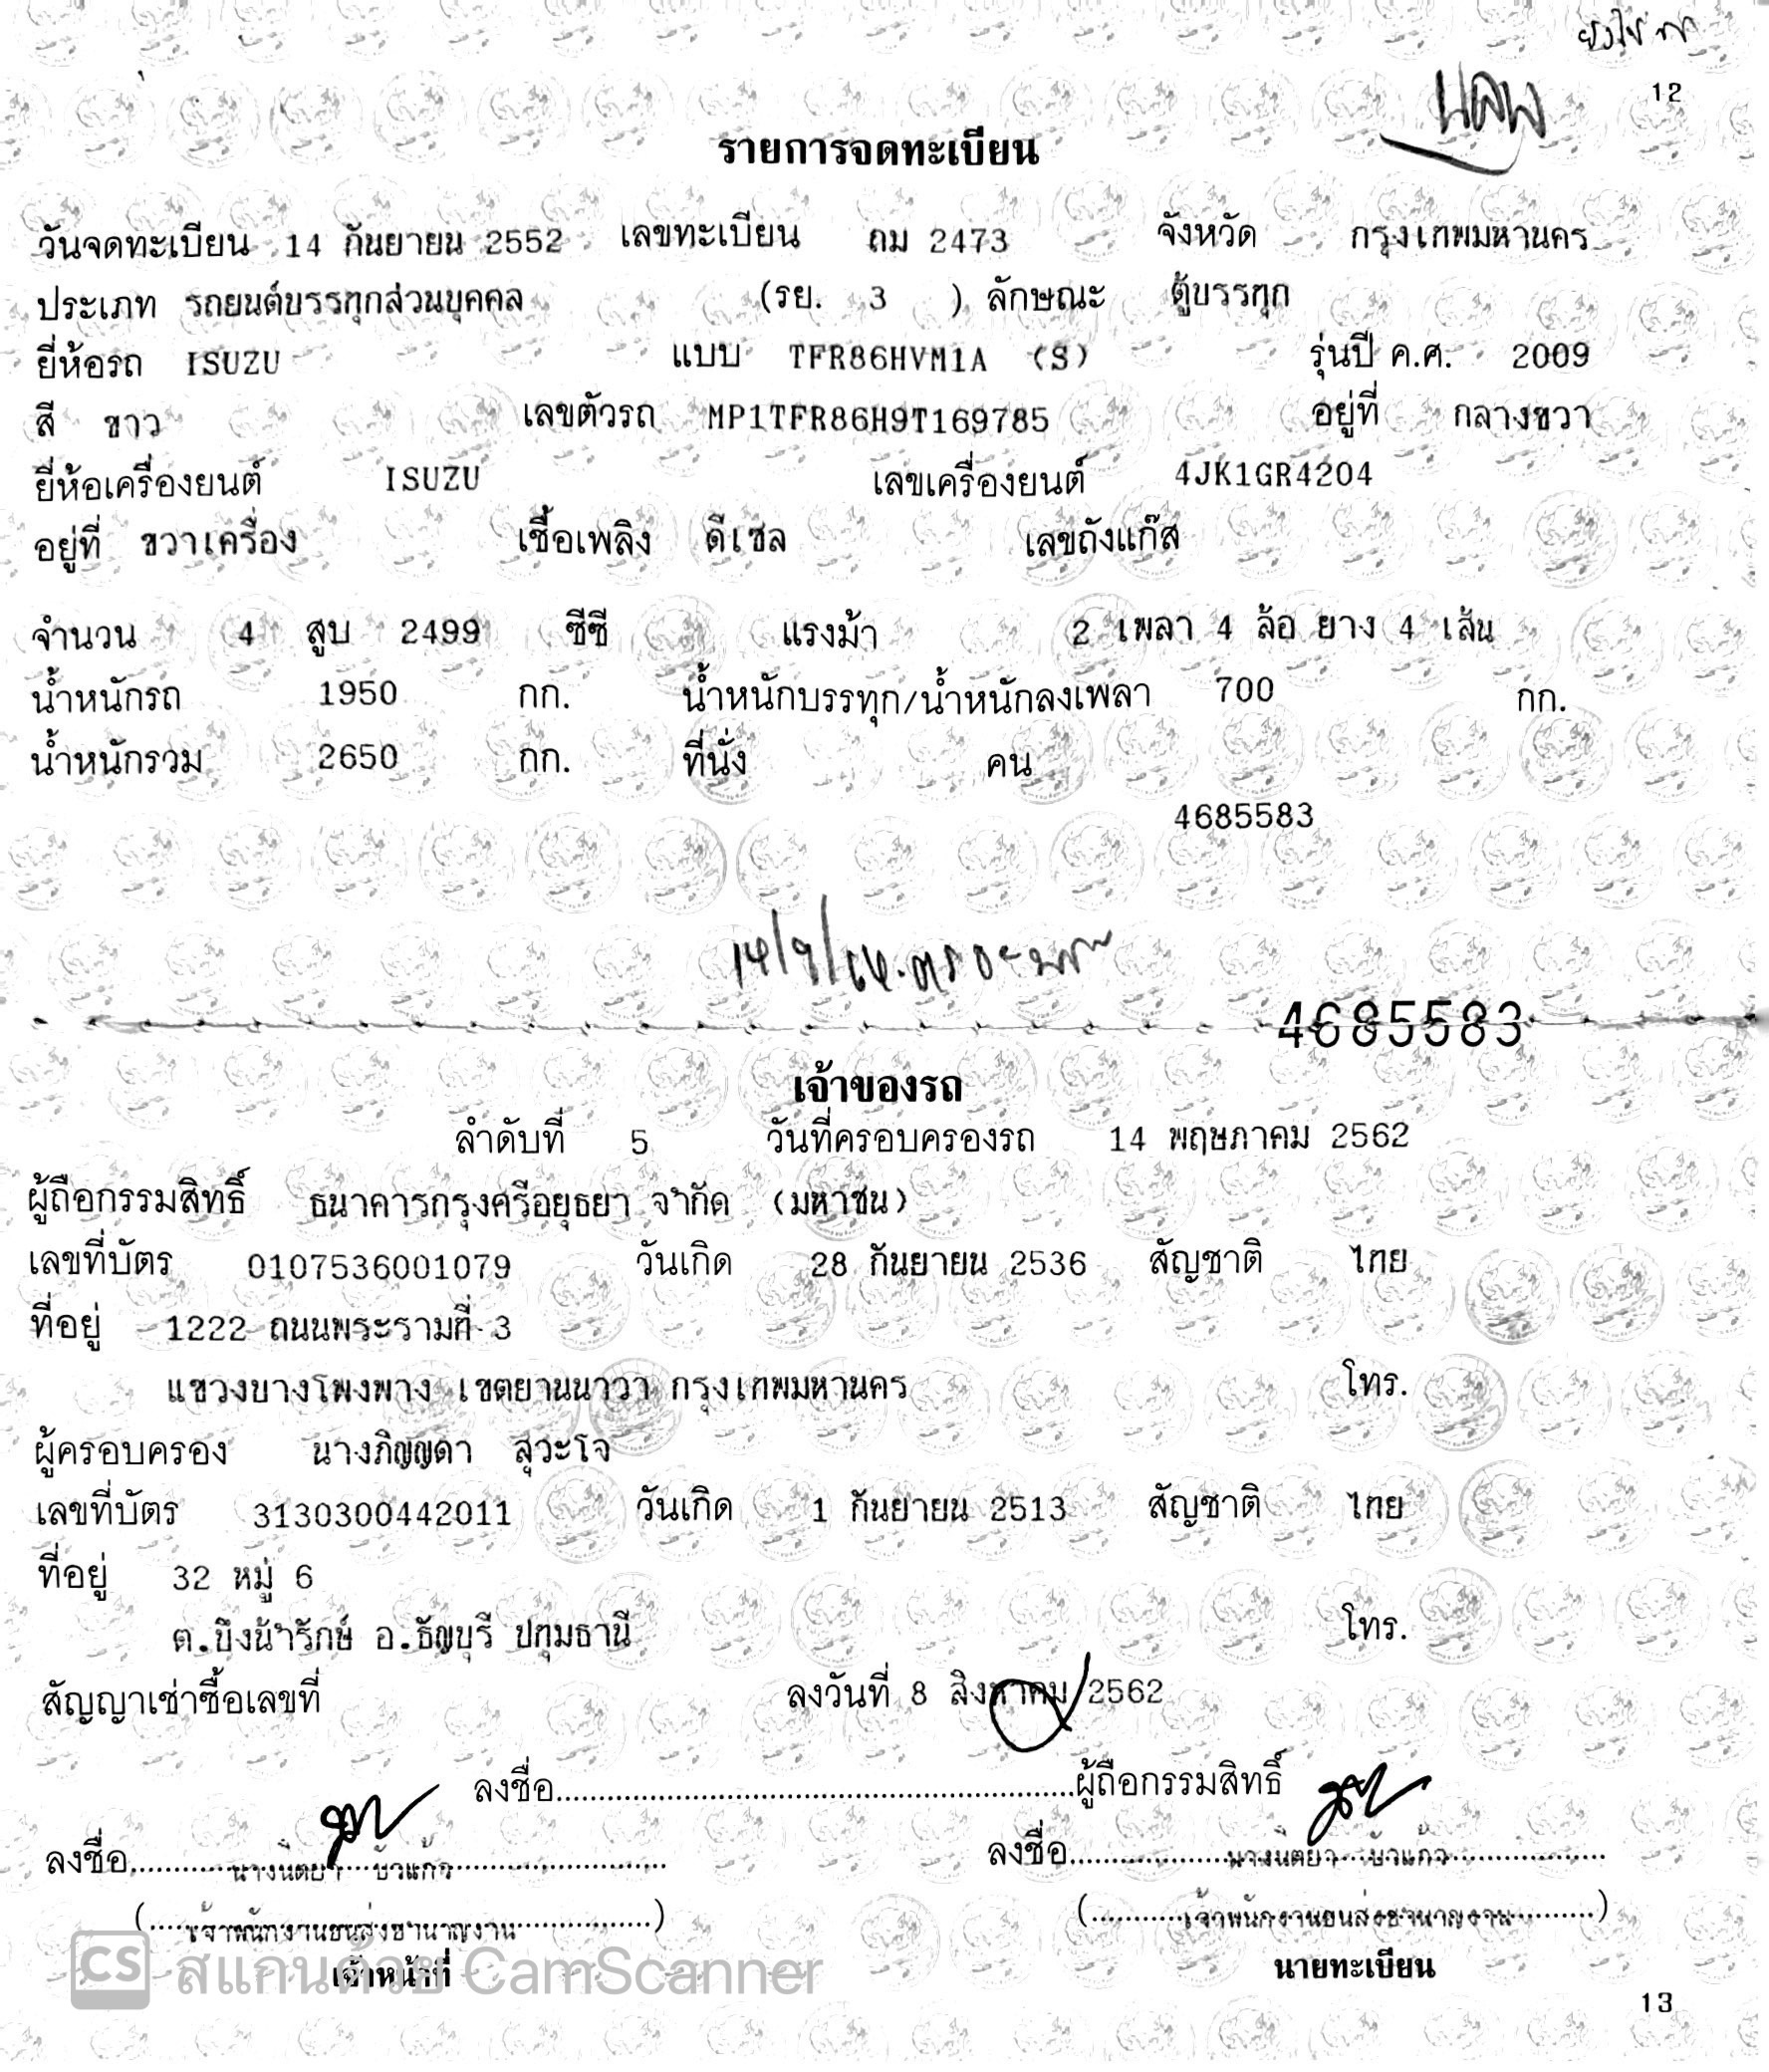 12
รายการจดทะเบียน
วันจดทะเบียน 14 กันยายน 2552 เลขทะเบียน ถม 2473 จังหวัด กรุงเทพมหานคร
ประเภท รถยนต์บรรทุกส่วนบุคคล (รย. 3 ) ลักษณะ ตู้บรรทุก
ยี่ห้อรถ ISUZU แบบ TFR86HVM1A (S) รุ่นปี ค.ศ. 2009
สี ขาว เลขตัวรถ MP1TFR86H9T169785 อยู่ที่ กลางขวา
ยี่ห้อเครื่องยนต์ ISUZU เลขเครื่องยนต์ 4JK1GR4204
อยู่ที่ ขวาเครื่อง เชื้อเพลิง ดีเซล เลขถังแก๊ส
จำนวน 4 สูบ 2499 ซีซี แรงม้า 2 เพลา 4 ล้อ ยาง 4 เส้น
น้ำหนักรถ 1950 กก. น้ำหนักบรรทุก/น้ำหนักลงเพลา 700 กก.
น้ำหนักรวม 2650 กก. ที่นั่ง คน
4685583
4685583
เจ้าของรถ
ลำดับที่ 5 วันที่ครอบครองรถ 14 พฤษภาคม 2562
ผู้ถือกรรมสิทธิ์ ธนาคารกรุงศรีอยุธยา จำกัด (มหาชน)
เลขที่บัตร 0107536001079 วันเกิด 28 กันยายน 2536 สัญชาติ ไทย
ที่อยู่ 1222 ถนนพระรามที่ 3
แขวงบางโพงพาง เขตยานนาวา กรุงเทพมหานคร โทร.
ผู้ครอบครอง นางภิญญดา สุวะโจ
เลขที่บัตร 3130300442011 วันเกิด 1 กันยายน 2513 สัญชาติ ไทย
ที่อยู่ 32 หมู่ 6
ต.บึงน้ำรักษ์ อ.ธัญบุรี ปทุมธานี โทร.
สัญญาเช่าซื้อเลขที่ ลงวันที่ 8 สิงหาคม 2562
ลงชื่อ ผู้ถือกรรมสิทธิ์
ลงชื่อ นางนิตยา บัวแก้ว ลงชื่อ นางนิตยา บัวแก้ว
(เจ้าพนักงานขนส่งชำนาญงาน) (เจ้าพนักงานขนส่งชำนาญงาน)
เจ้าหน้าที่ นายทะเบียน
CS สแกนด้วย CamScanner
13